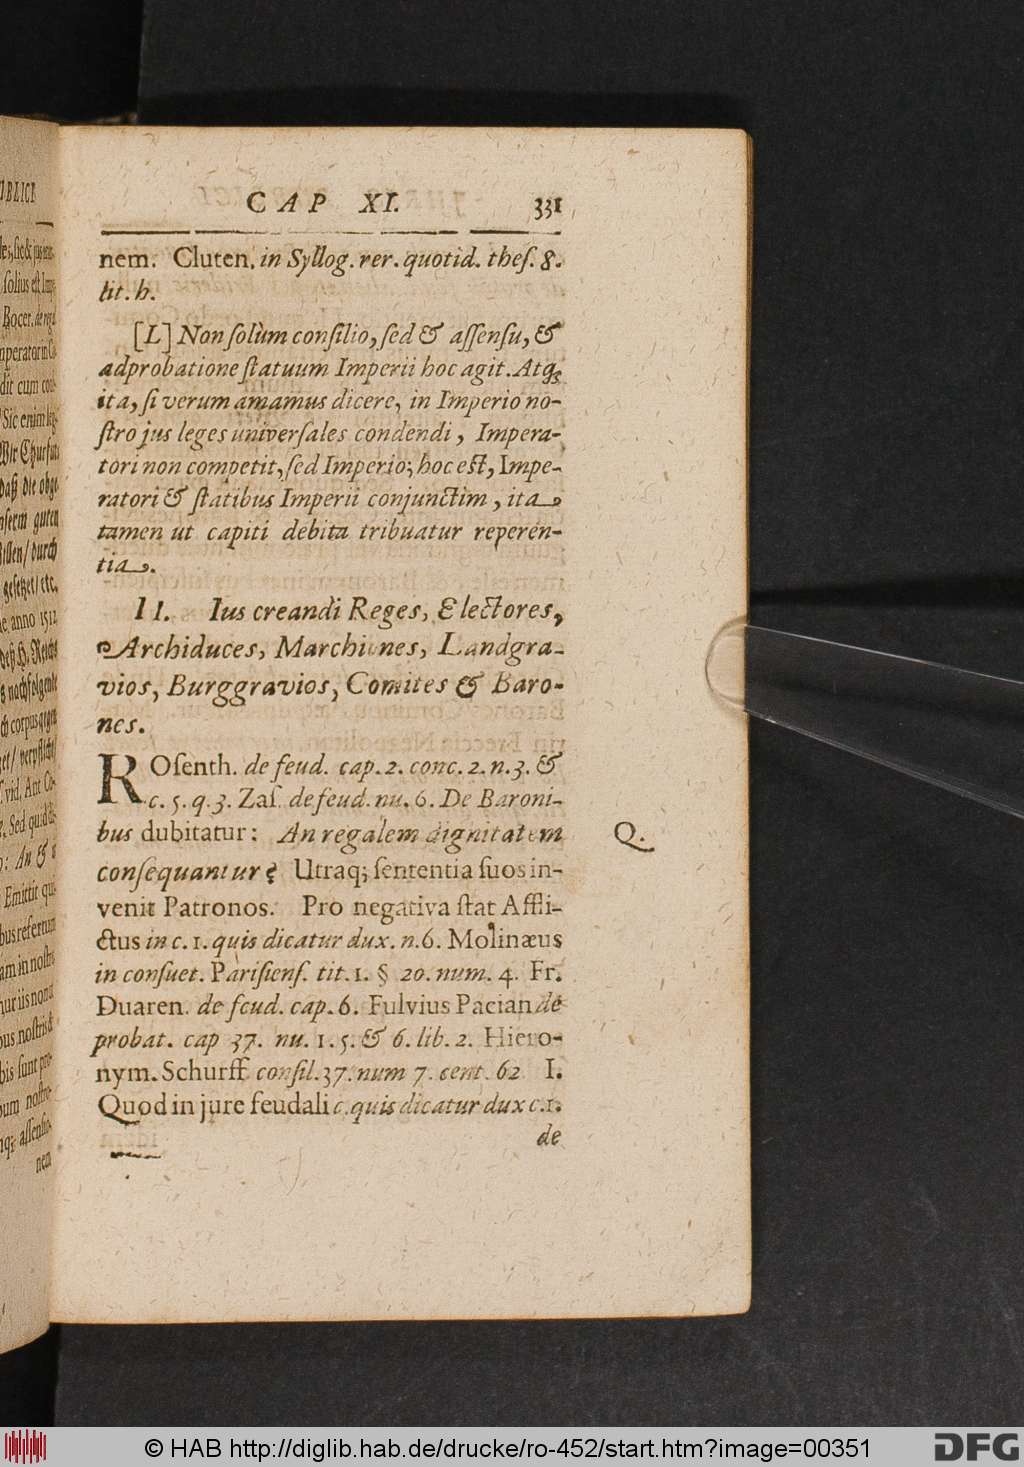 CAP XI. 331
nem. Cluten. in Syllog. rer. quotid. thes. 8.
lit. h.
[L] Non solùm consilio, sed & assensu, &
adprobatione statuum Imperii hoc agit. Atq;
ita, si verum amamus dicere, in Imperio no-
stro jus leges universales condendi, Impera-
tori non competit, sed Imperio; hoc est, Impe-
ratori & statibus Imperii conjunctim, ita
tamen ut capiti debita tribuatur reperen-
tia.
11. Ius creandi Reges, Electores,
Archiduces, Marchiones, Landgra-
vios, Burggravios, Comites & Baro-
nes.
ROsenth. de feud. cap. 2. conc. 2. n. 3. &
c. 5. q. 3. Zas. de feud. nu. 6. De Baroni-
bus dubitatur: An regalem dignitatem
consequantur? Utraq; sententia suos in-
venit Patronos. Pro negativa stat Affli-
ctus in c. 1. quis dicatur dux. n. 6. Molinæus
in consuet. Parisiens. tit. 1. § 20. num. 4. Fr.
Duaren. de feud. cap. 6. Fulvius Pacian de
probat. cap 37. nu. 1. 5. & 6. lib. 2. Hiero-
nym. Schurff consil. 37. num 7. cent. 62 I.
Quod in jure feudali c. quis dicatur dux c. 1.
de
Q.
© HAB http://diglib.hab.de/drucke/ro-452/start.htm?image=00351
DFG